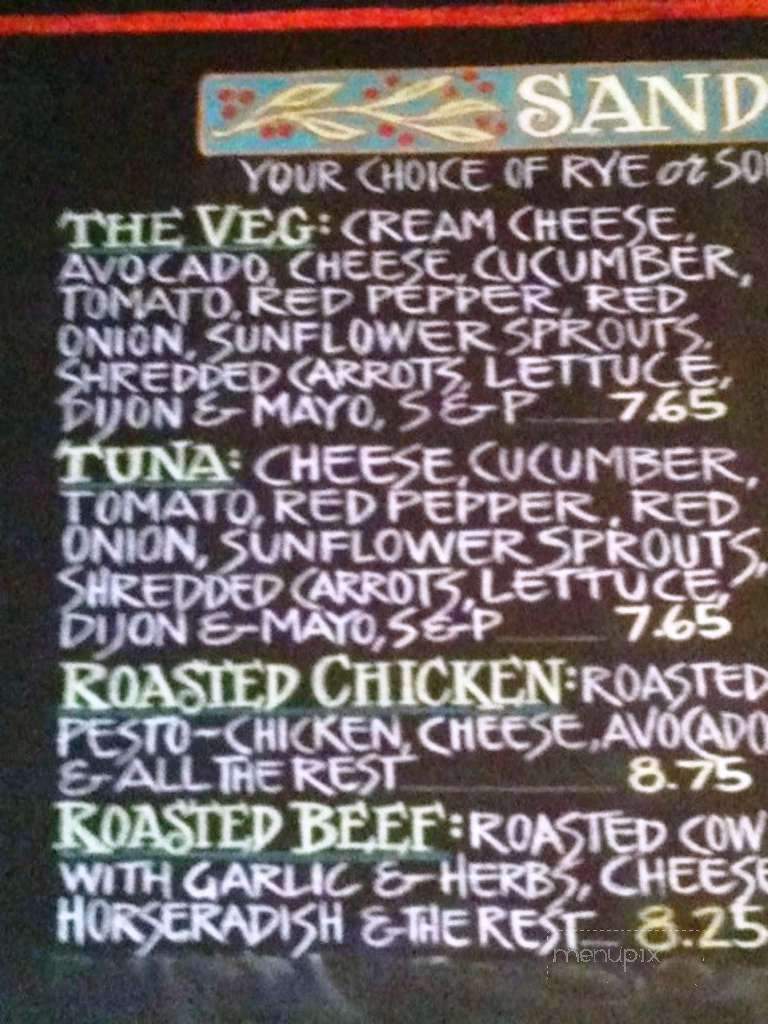 SAND
YOUR CHOICE OF RYE or SO
THE VEG: CREAM CHEESE,
AVOCADO, CHEESE, CUCUMBER,
TOMATO, RED PEPPER, RED
ONION, SUNFLOWER SPROUTS,
SHREDDED CARROTS, LETTUCE,
DIJON & MAYO, S & P 7.65
TUNA: CHEESE, CUCUMBER,
TOMATO, RED PEPPER, RED
ONION, SUNFLOWER SPROUTS,
SHREDDED CARROTS, LETTUCE,
DIJON & MAYO, S & P 7.65
ROASTED CHICKEN: ROASTED
PESTO-CHICKEN, CHEESE, AVOCADO
& ALL THE REST 8.75
ROASTED BEEF: ROASTED COW
WITH GARLIC & HERBS, CHEESE
HORSERADISH & THE REST 8.25
menupix